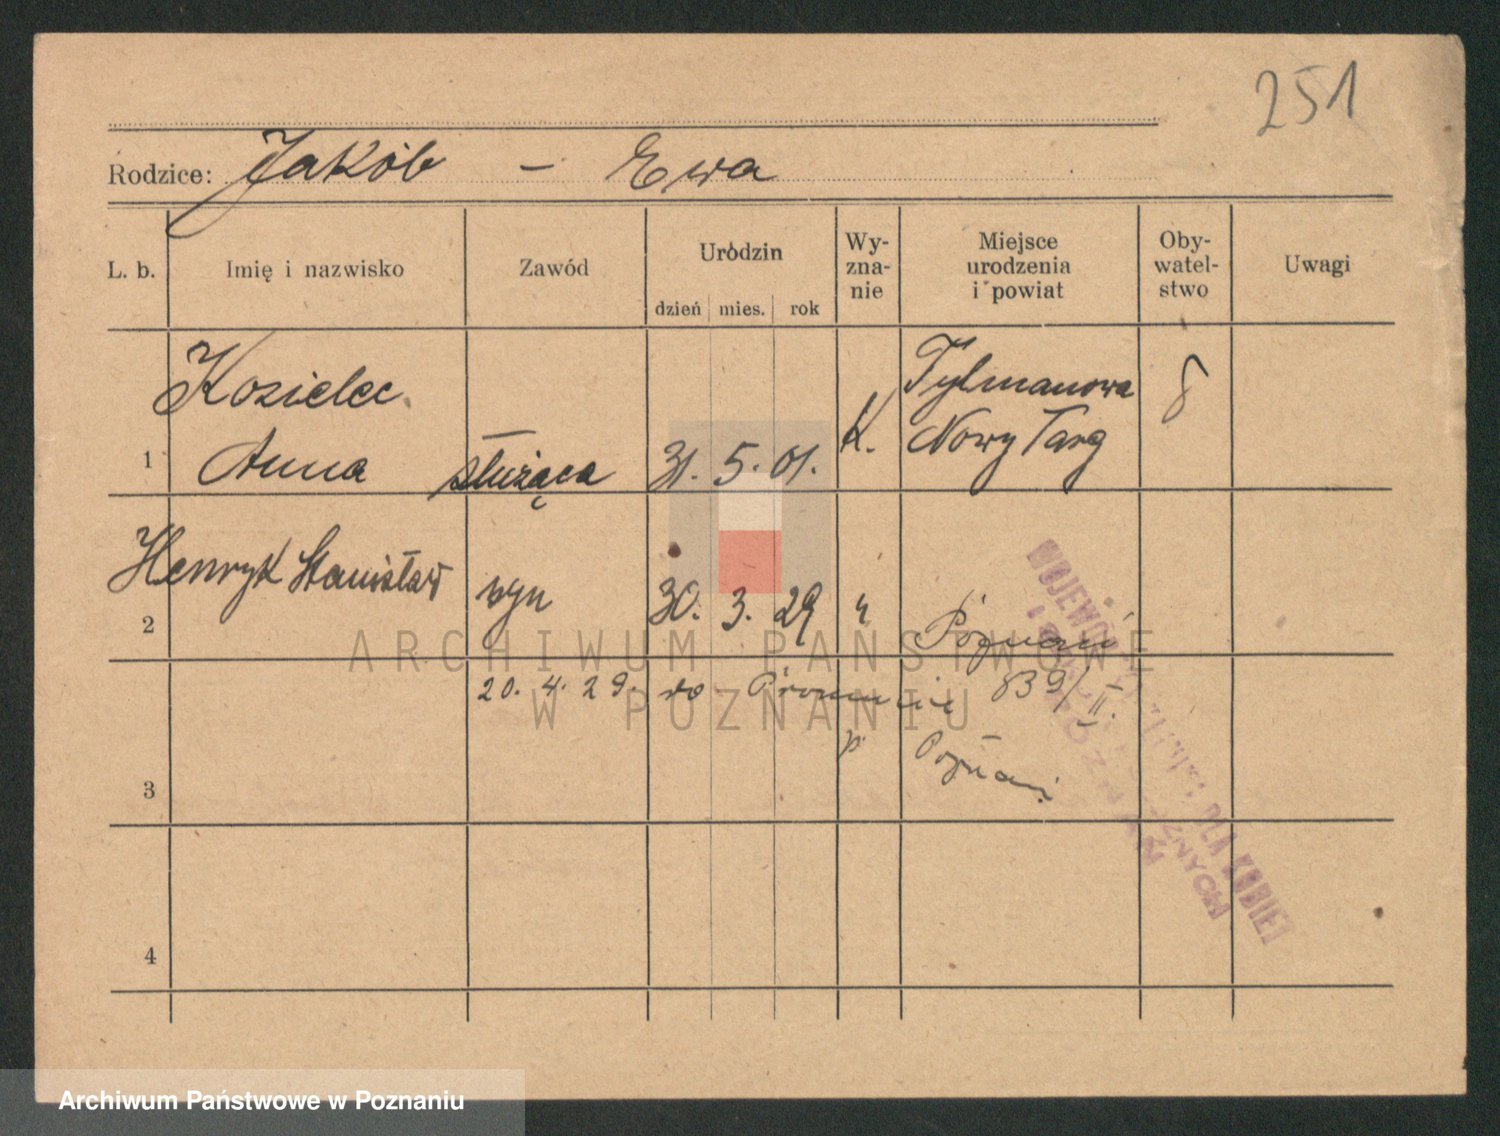 251
Rodzice: Jakób – Ewa
L. b. Imię i nazwisko Zawód Urodzin dzień mies. rok Wy-zna-nie Miejsce urodzenia i powiat Oby-watel-stwo Uwagi
Kozielec Tylmanowa
1 Anna służąca 31. 5. 01. K. Nowy Targ
Henryk Stanisław
2 syn 30. 3. 29 Poznań
20. 4. 29. do 839/II.
3 p. Poznań
4
WOJEWÓDZKI DLA KOBIET
ARCHIWUM PAŃSTWOWE
W POZNANIU
Archiwum Państwowe w Poznaniu